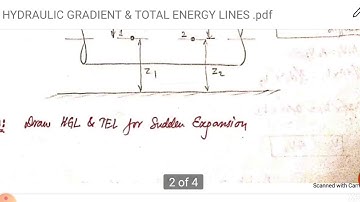 HYDRAULIC GRADIENT & TOTAL ENERGY LINES .pdf
1
2
Z1
Z2
Draw HGL & TEL for Sudden Expansion
2 of 4
Scanned with Cam